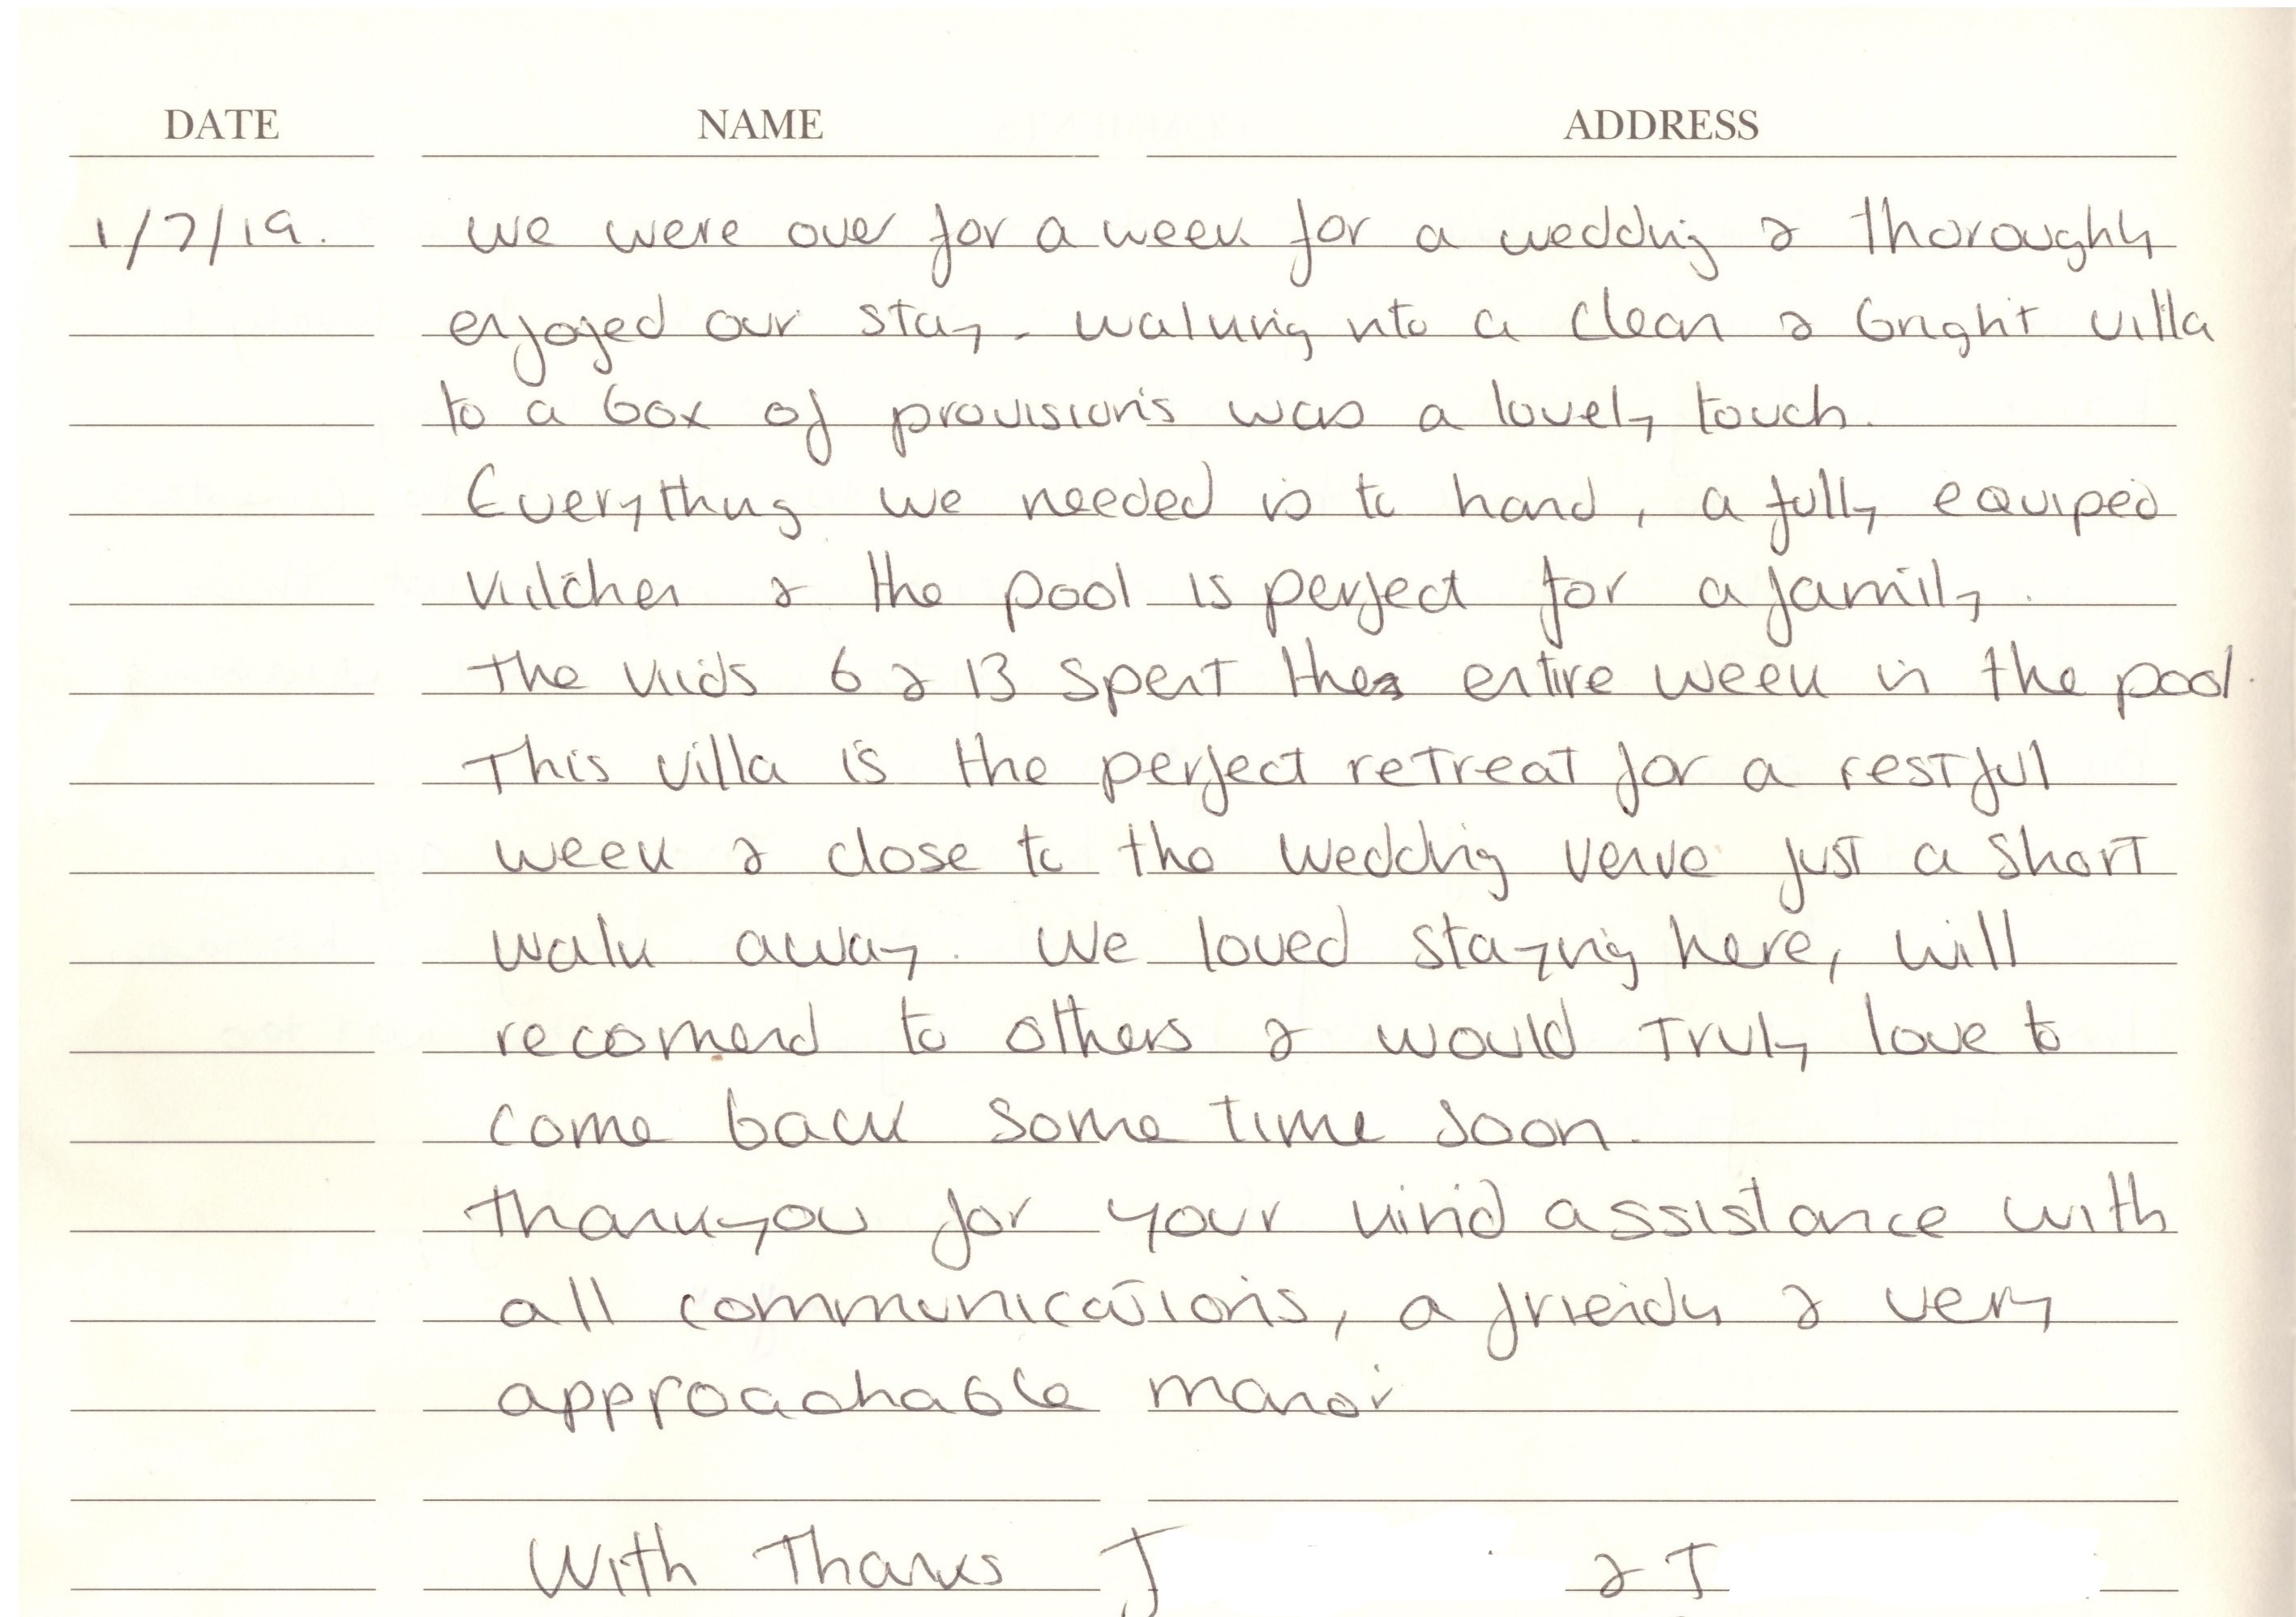 DATE NAME ADDRESS
1/7/19. we were over for a week for a wedding & thoroughly
enjoyed our stay. walking into a clean & bright villa
to a box of provisions was a lovely touch.
Everything we needed is to hand, a fully equiped
kitchen & the pool is perfect for a family.
The kids 6 & 13 spent the entire week in the pool.
This villa is the perfect retreat for a restful
week & close to the wedding venue just a short
walk away. We loved staying here, will
recomend to others & would truly love to
come back some time soon.
Thankyou for your kind assistance with
all communications, a friendly & very
approachable manor
With Thanks J & J